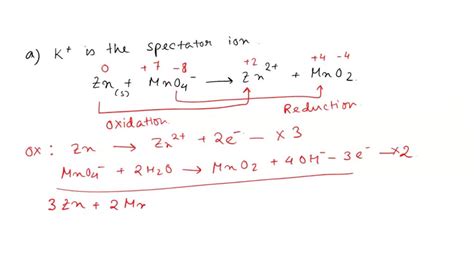 a) K⁺ is the spectator ion.
0 +7 -8 +2 +4 -4
Zn(s) + MnO₄⁻ → Zn²⁺ + MnO₂
Oxidation Reduction
OX : Zn → Zn²⁺ + 2e⁻ — × 3
MnO₄⁻ + 2H₂O → MnO₂ + 4OH⁻ - 3e⁻ — ×2
3Zn + 2Mn